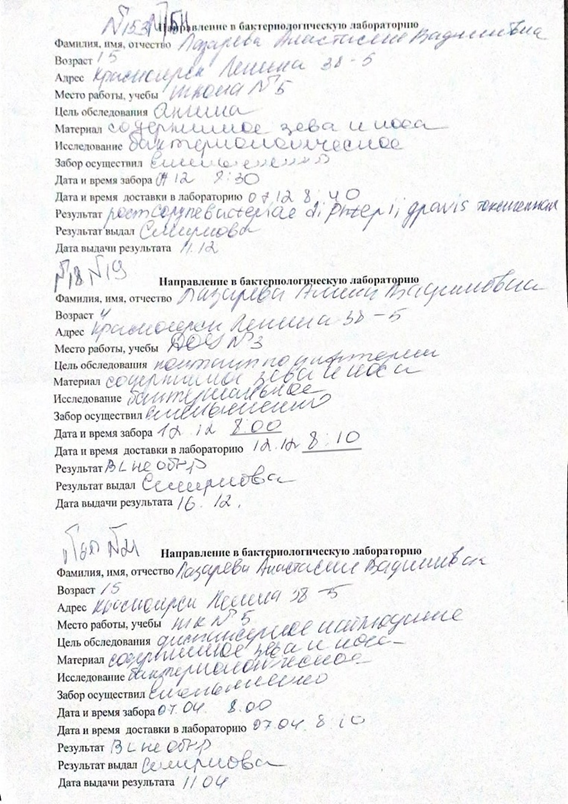 №153 №154
Направление в бактериологическую лабораторию
Фамилия, имя, отчество Лазарева Анастасия Вадимовна
Возраст 15
Адрес Красноярск Ленина 38-5
Место работы, учебы школа №5
Цель обследования ангина
Материал содержимое зева и носа
Исследование бактериологическое
Забор осуществил Емельяненко
Дата и время забора 07.12 8:30
Дата и время доставки в лабораторию 07.12 8:40
Результат рост corynebacteriae diphterii gravis токсигенная
Результат выдал Смирнова
Дата выдачи результата 11.12
№18 №19
Направление в бактериологическую лабораторию
Фамилия, имя, отчество Лазарева Вадимовна
Возраст 4
Адрес Красноярск Ленина 38-5
Место работы, учебы ДОУ №3
Цель обследования контакт по дифтерии
Материал содержимое зева и носа
Исследование бактериальное
Забор осуществил Емельяненко
Дата и время забора 12.12 8:00
Дата и время доставки в лабораторию 12.12 8:10
Результат BL не обнар
Результат выдал Смирнова
Дата выдачи результата 16.12.
№21
Направление в бактериологическую лабораторию
Фамилия, имя, отчество Лазарева Анастасия Вадимовна
Возраст 15
Адрес Красноярск Ленина 38-5
Место работы, учебы шк №5
Цель обследования диспансерное наблюдение
Материал содержимое зева и носа
Исследование бактериологическое
Забор осуществил Емельяненко
Дата и время забора 07.04. 8.00
Дата и время доставки в лабораторию 07.04. 8.10
Результат BL не обнар
Результат выдал Смирнова
Дата выдачи результата 11 04